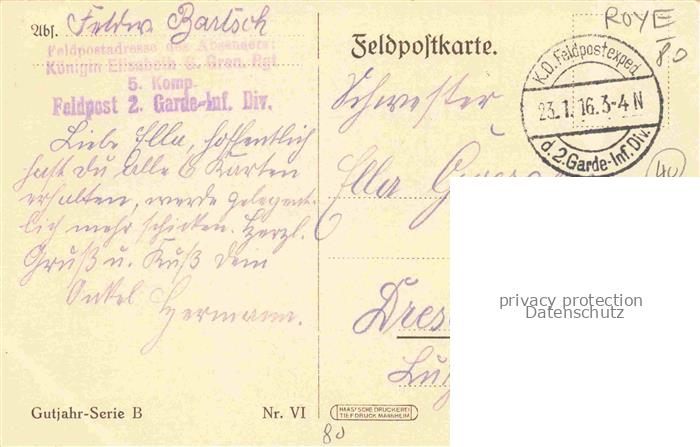 Abs. Feldw. Bartsch
Feldpostadresse des Absenders:
Königin Elisabeth G. Gren. Rgt.
5. Komp.
Feldpost 2. Garde-Inf. Div.
Liebe Ella, hoffentlich
hast Du alle 6 Karten
erhalten, werde gelegent-
lich mehr schicken. Herzl.
Gruß u. Kuß Dein
Onkel Hermann.
Gutjahr-Serie B
Nr. VI
Feldpostkarte.
ROYE
80
K.D. Feldpostexped.
23.1.16.3-4N
d. 2. Garde-Inf. Div.
40
Schwester
Ella
Dres
privacy protection
Datenschutz
HAAS'SCHE DRUCKEREI
TIEFDRUCK MANNHEIM
80